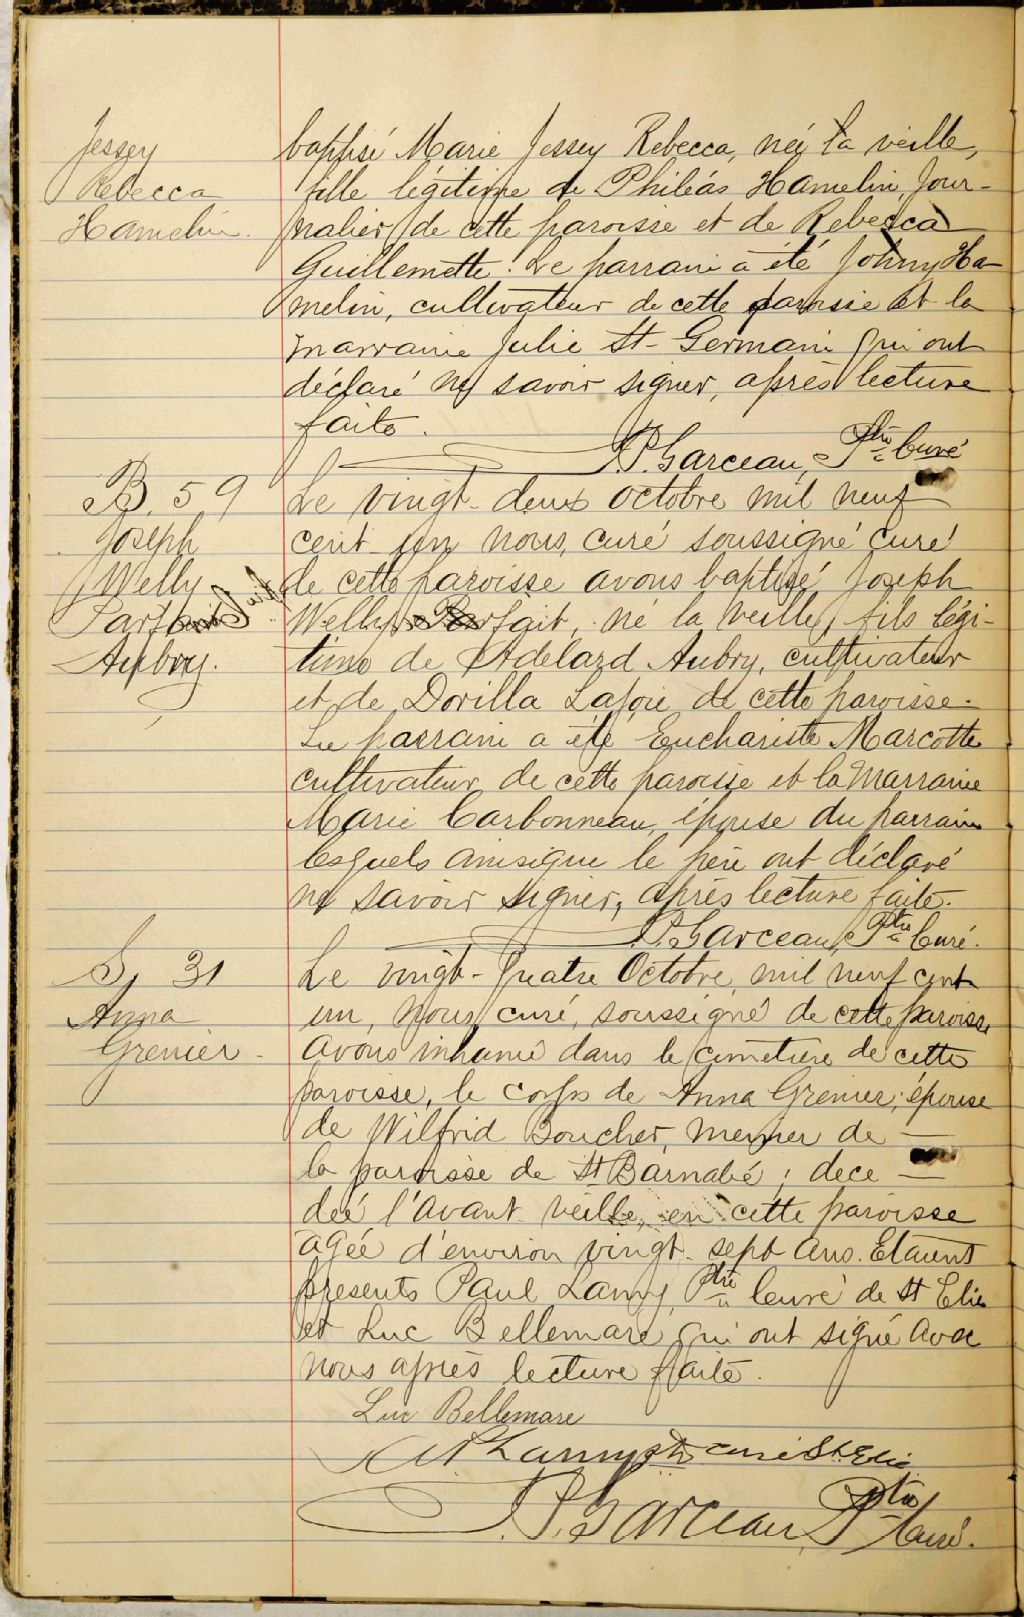 Jessey
Rebecca
Hamelin.
baptisé Marie Jessey Rebecca, née la veille,
fille légitime de Philéas Hamelin, jour-
nalier de cette paroisse et de Rebecca
Guillemette. Le parrain a été Johny Ha-
melin, cultivateur de cette paroisse et la
marraine Julie St-Germain qui ont
déclaré ne savoir signer, après lecture
faite.
J.P. Garceau, Ptre Curé
B. 59
Joseph
Welly
Parfait
Aubry.
Le vingt-deux octobre mil neuf
cent un nous, curé soussigné curé
de cette paroisse avons baptisé Joseph
Welly Parfait, né la veille, fils légi-
time de Adelard Aubry, cultivateur
et de Dorilla Lajoie de cette paroisse.
Le parrain a été Euchariste Marcotte
cultivateur de cette paroisse et la marraine
Marie Carbonneau, épouse du parrain
lesquels ainsique le père ont déclaré
ne savoir signer, après lecture faite.
J.P. Garceau, Ptre Curé.
S. 31
Anna
Grenier.
Le vingt-quatre Octobre, mil neuf cent
un, nous, curé, soussigné de cette paroisse
avons inhumé dans le cimetière de cette
paroisse, le corps de Anna Grenier, épouse
de Wilfrid Boucher, de —
la paroisse de St Barnabé; déce —
deé l'avant veille, en cette paroisse
agée d'environ vingt-sept ans. Etaient
présents Paul Lamy, Ptre Curé de St Elie
et Luc Bellemare qui ont signé avec
nous après lecture faite.
Luc Bellemare
Lamy ptre curé St Elie
J.P. Garceau, Ptre Curé.